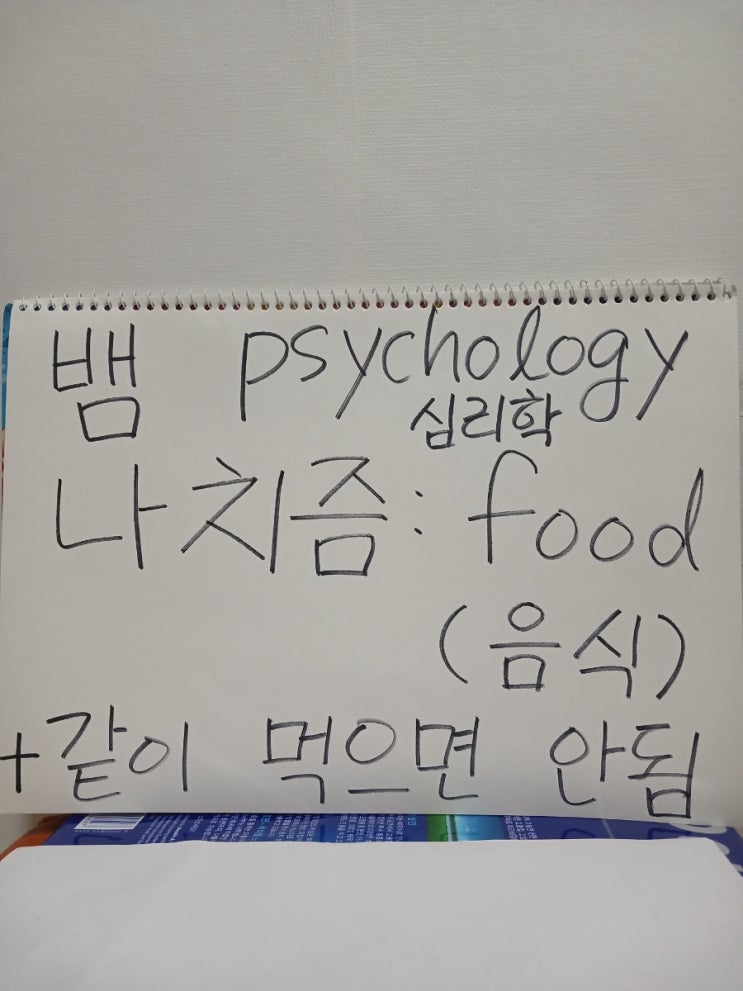 뱀 psychology
심리학
나치즘: food
(음식)
+같이 먹으면 안됨